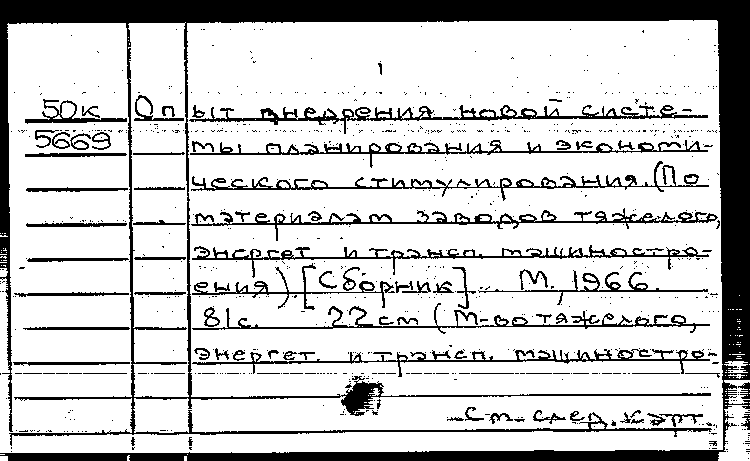 50к Опыт внедрения новой систе-
5669 мы планирования и экономи-
ческого стимулирования. (По
материалам заводов тяжелого,
энергет. и трансп. машиностро-
ения). [Сборник]. М., 1966.
81с. 22 см (М-во тяжелого,
энергет. и трансп. машиностро-
см. след. карт.